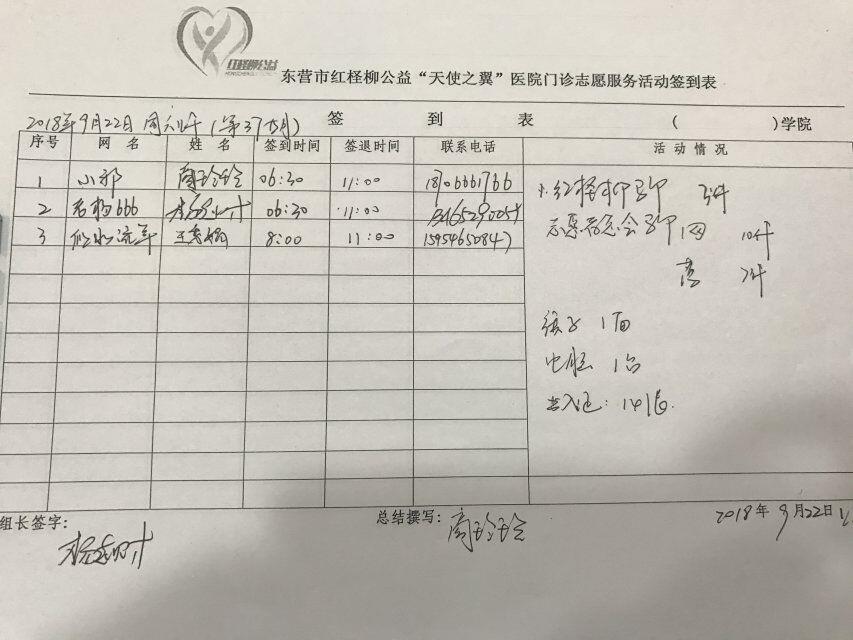 红柽柳公益
东营市红柽柳公益“天使之翼”医院门诊志愿服务活动签到表
2018年9月22日 周六上午(第37期)
签 到 表 ( )学院
序号 网 名 姓 名 签到时间 签退时间 联系电话 活 动 情 况
1 小祁 商玲玲 06:30 11:00
2 杨666 06:30 11:00
3 似水流年 王秀娟 8:00 11:00 15954650847
红柽柳马甲 3件
志愿者总会马甲 网 10件
蓝 7件
镜子 1面
电脑 1台
出入证:14张.
组长签字:
总结撰写: 商玲玲
2018年9月22日